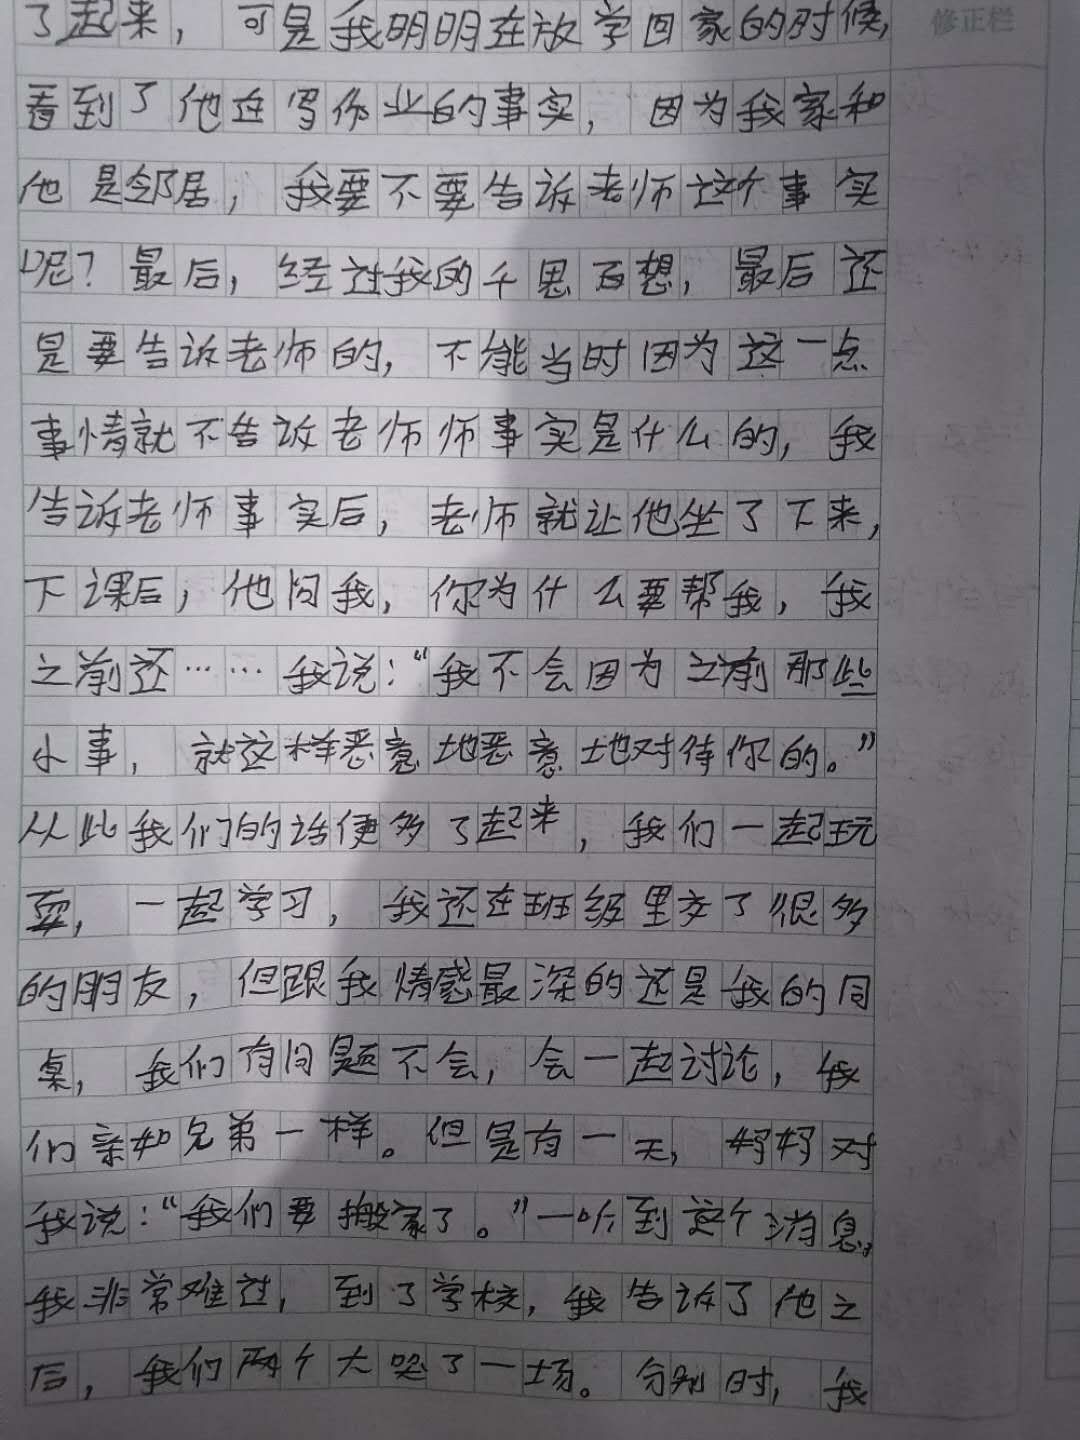 了起来，可是我明明在放学回家的时候，
修正栏
看到了他在写作业的事实，因为我家和
他是邻居，我要不要告诉老师这个事实
呢？最后，经过我的千思百想，最后还
是要告诉老师的，不能当时因为这一点
事情就不告诉老师师事实是什么的，我
告诉老师事实后，老师就让他坐了下来，
下课后，他问我，你为什么要帮我，我
之前还……我说：“我不会因为之前那些
小事，就这样恶意地恶意地对待你的。”
从此我们的话便多了起来，我们一起玩
耍，一起学习，我还在班级里交了很多
的朋友，但跟我情感最深的还是我的同
桌，我们有问题不会，会一起讨论，我
们亲如兄弟一样。但是有一天，妈妈对
我说：“我们要搬家了。”一听到这个消息，
我非常难过，到了学校，我告诉了他之
后，我们两个大哭了一场。分别时，我